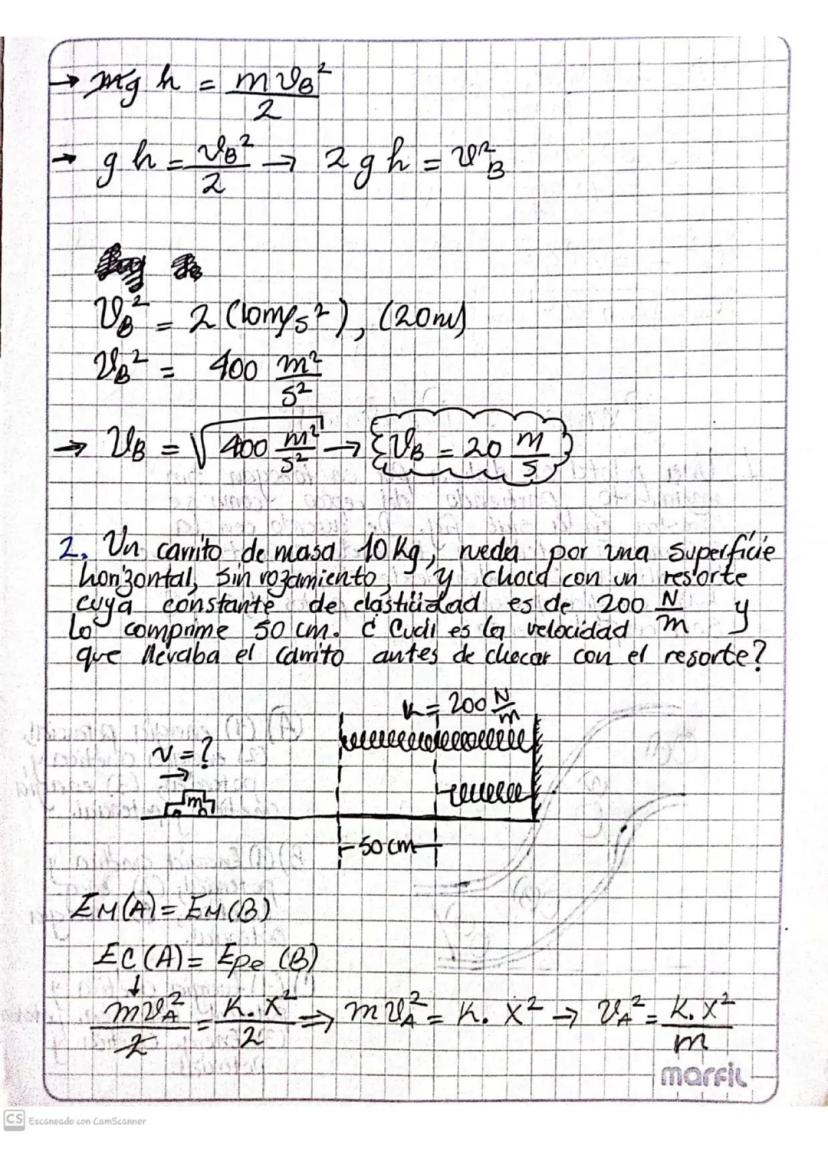 → mg h = m v_B² / 2
→ g h = v_B² / 2 → 2 g h = v²_B
v_B² = 2 (10 m/s²), (20m)
v_B² = 400 m²/s²
→ v_B = √400 m²/s² → v_B = 20 m/s
2. Un carrito de masa 10 Kg, rueda por una superficie
horizontal, sin rozamiento, y choca con un resorte
cuya constante de elasticidad es de 200 N/m y
lo comprime 50 cm. ¿ Cuál es la velocidad
que llevaba el carrito antes de chocar con el resorte?
K = 200 N/m
v = ?
→
m
50 cm
EM(A) = EM(B)
EC(A) = Epe (B)
↓
m v_A² / 2 = K. X² / 2 ⇒ m v_A² = K. X² → v_A² = K. X² / m
marfil
CS Escaneado con CamScanner